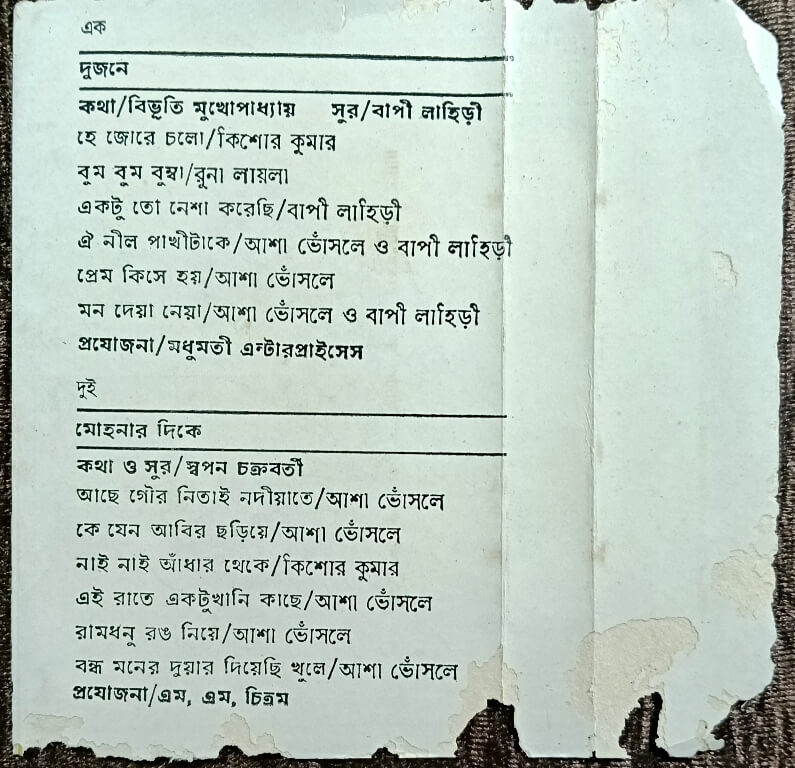 এক
দুজনে
কথা/বিভূতি মুখোপাধ্যায় সুর/বাপী লাহিড়ী
হে জোরে চলো/কিশোর কুমার
বুম বুম বুম্বা/রুনা লায়লা
একটু তো নেশা করেছি/বাপী লাহিড়ী
ঐ নীল পাখীটাকে/আশা ভোঁসলে ও বাপী লাহিড়ী
প্রেম কিসে হয়/আশা ভোঁসলে
মন দেয়া নেয়া/আশা ভোঁসলে ও বাপী লাহিড়ী
প্রযোজনা/মধুমতী এন্টারপ্রাইসেস
দুই
মোহনার দিকে
কথা ও সুর/স্বপন চক্রবর্তী
আছে গৌর নিতাই নদীয়াতে/আশা ভোঁসলে
কে যেন আবির ছড়িয়ে/আশা ভোঁসলে
নাই নাই আঁধার থেকে/কিশোর কুমার
এই রাতে একটুখানি কাছে/আশা ভোঁসলে
রামধনু রঙ নিয়ে/আশা ভোঁসলে
বন্ধ মনের দুয়ার দিয়েছি খুলে/আশা ভোঁসলে
প্রযোজনা/এম, এম, চিত্রম